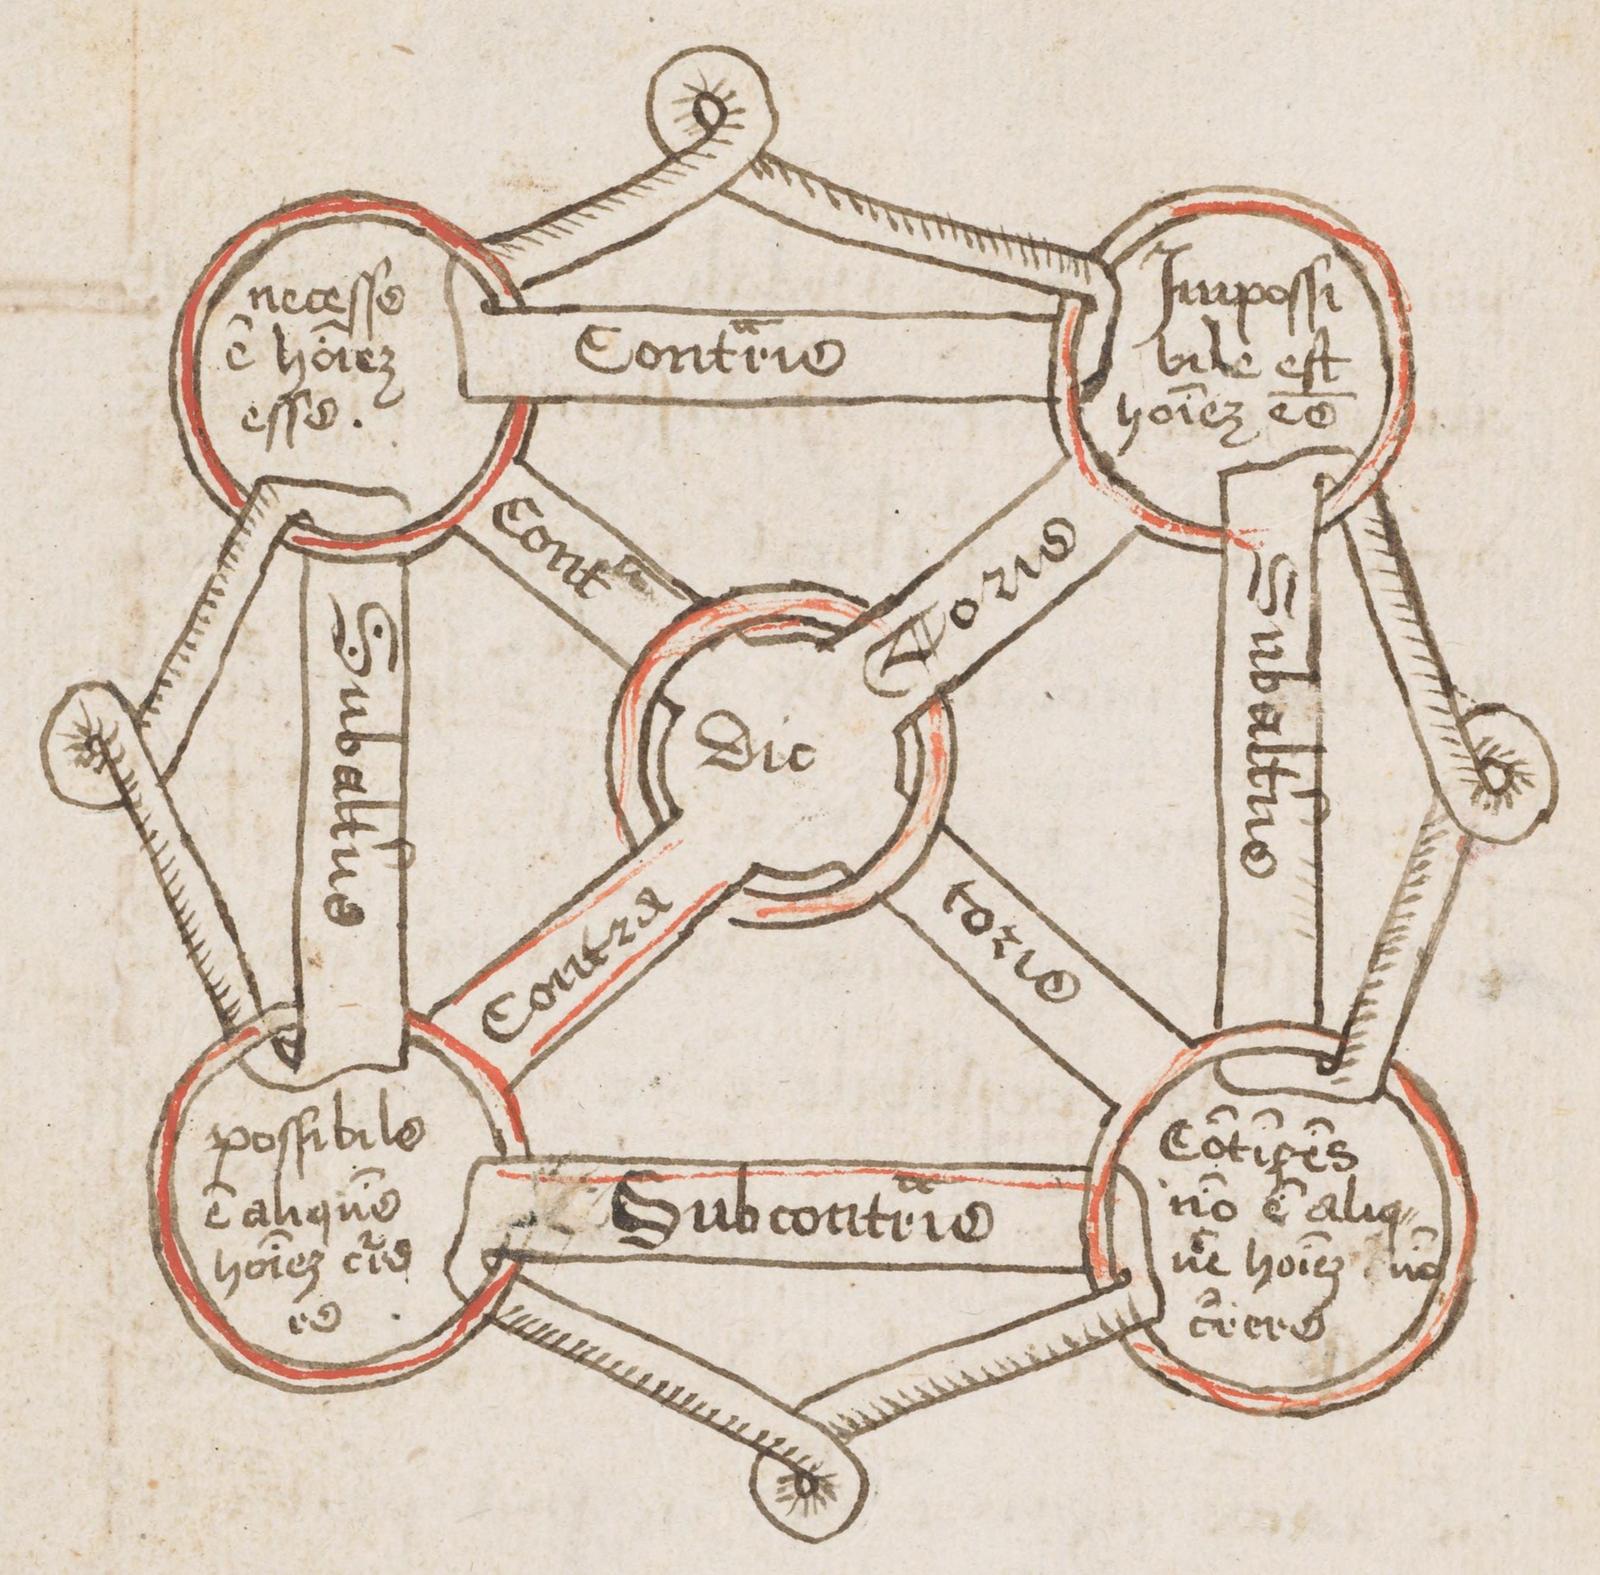 necesse
ē hōīez
esse.
Contᷓrie
Impossi
bile est
hoīez ēē
Contᷓ
torie
Subaltͥne
Subaltͥne
Dic
Contra
torie
possibile
ē aliquē
hoīez
re
Subcontᷓrie
Cōtīgēs
nō ē aliq
uē hoīez nō
currere